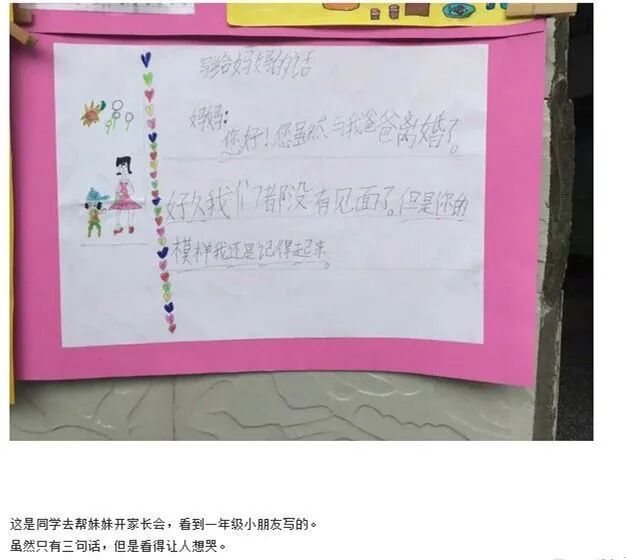 写给妈妈的话
妈妈:
您好!您虽然与我爸爸离婚了。
好久我们都没有见面了。但是你的
模样我还是记得起来
这是同学去帮妹妹开家长会，看到一年级小朋友写的。
虽然只有三句话，但是看得让人想哭。